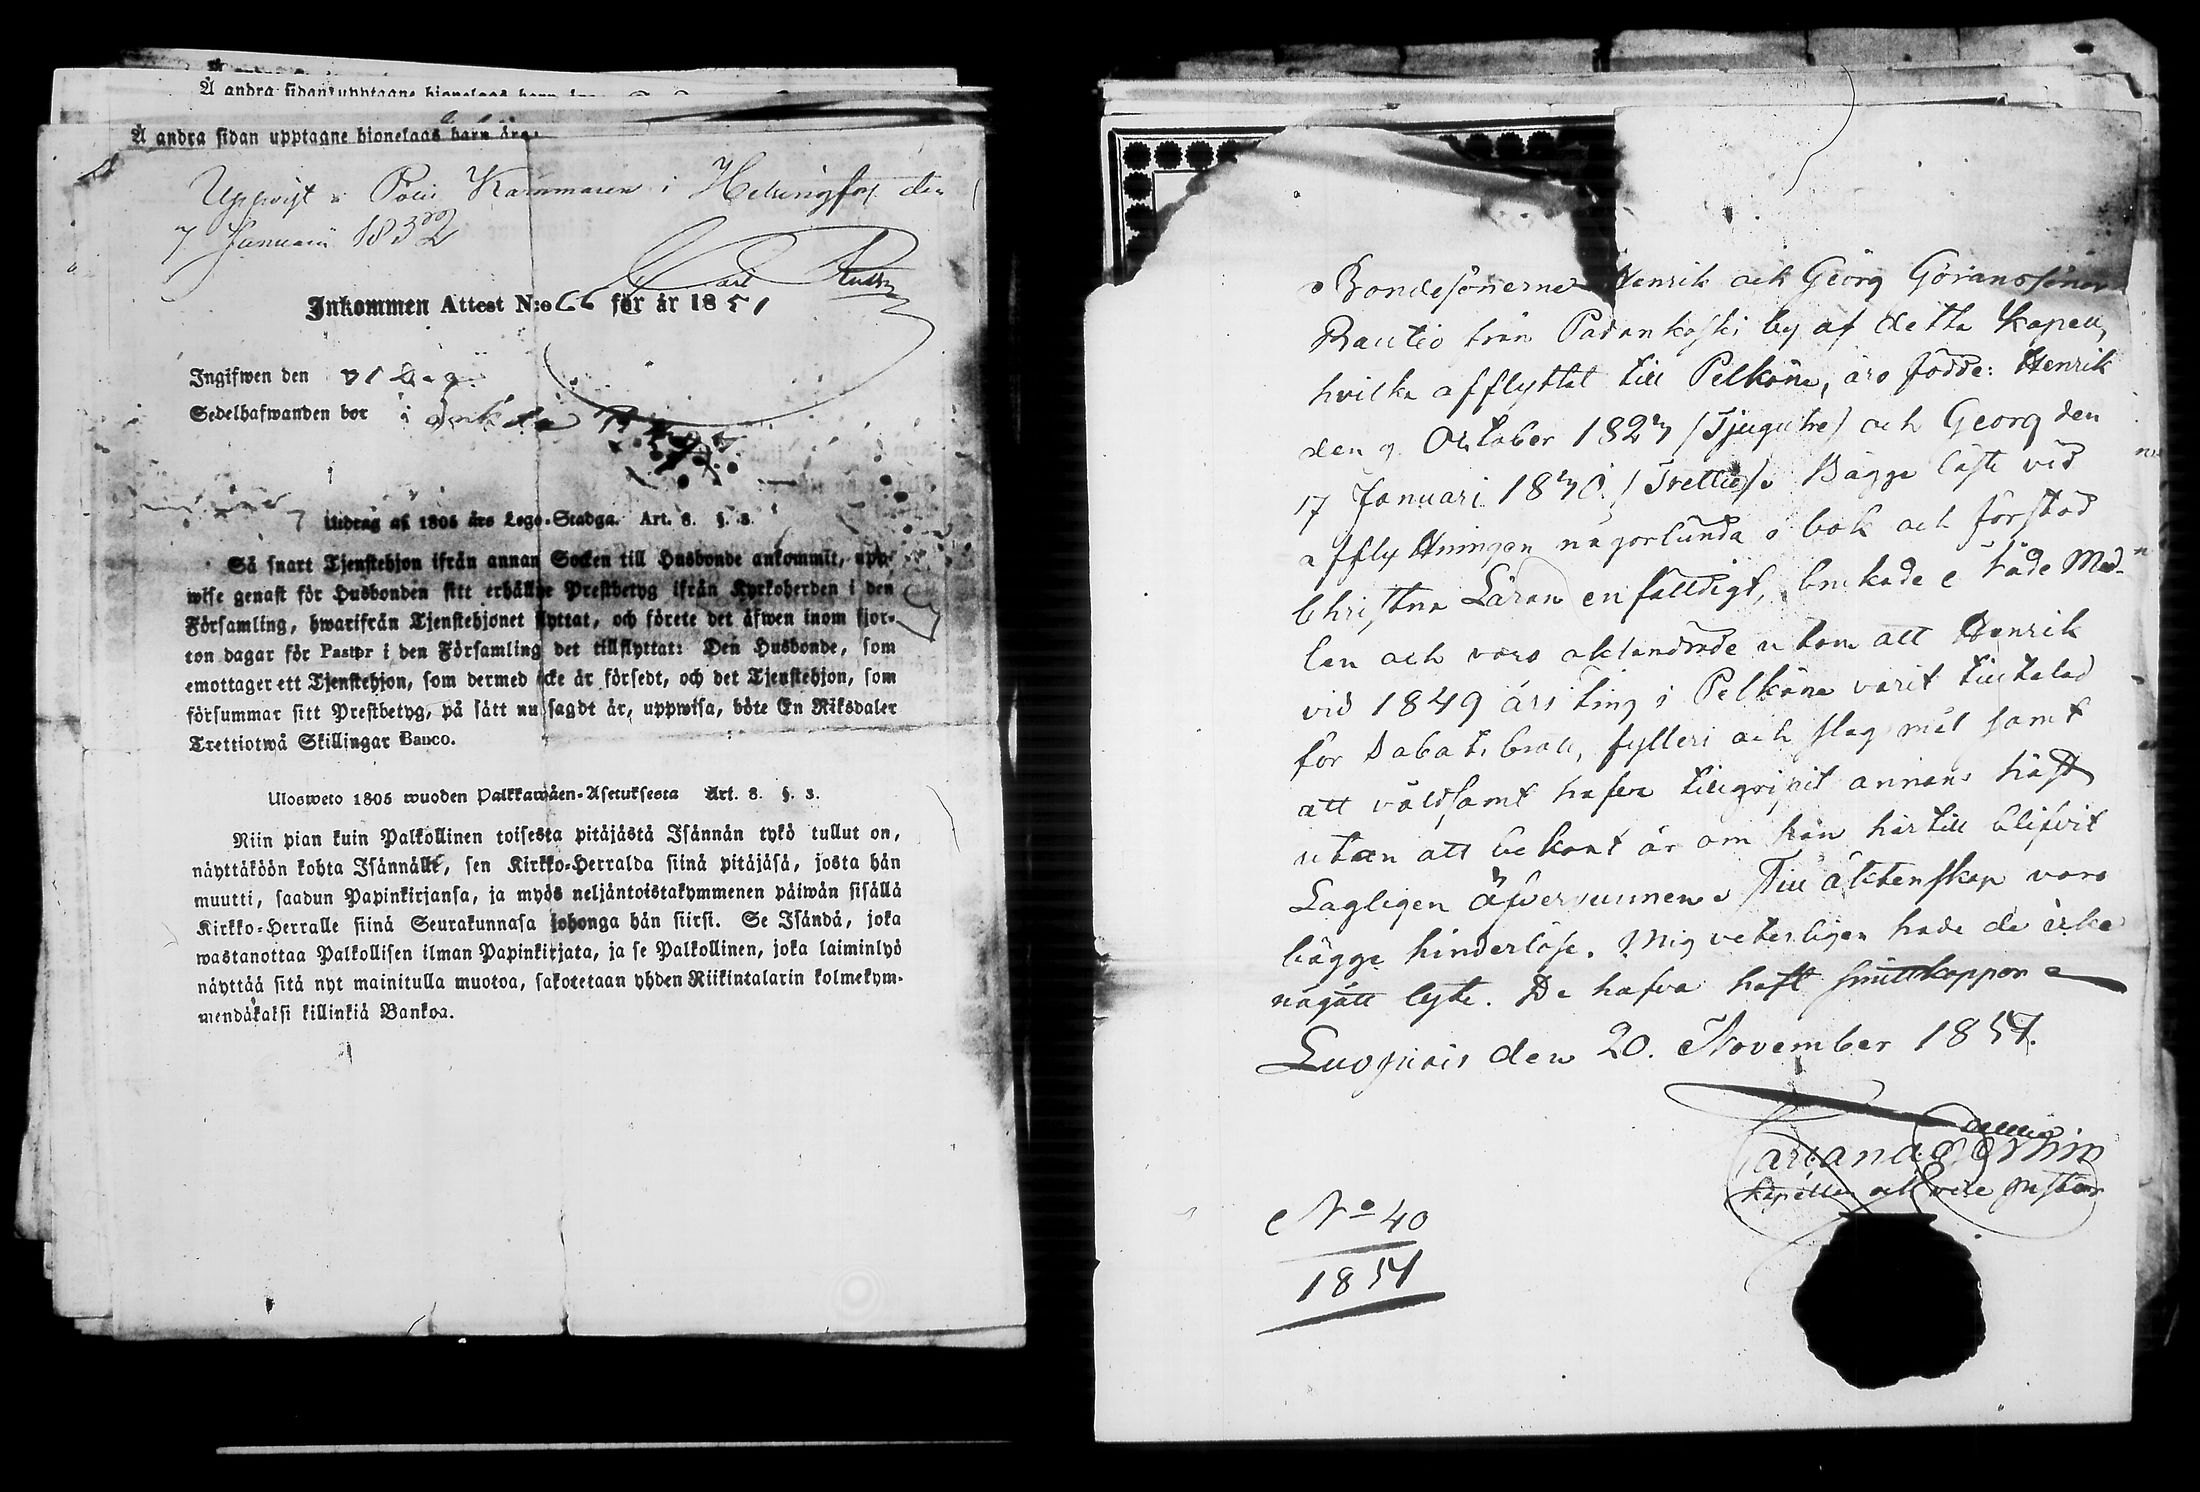 Å andra sidan upptagne hionelaas barn äro:
Å andra sidan upptagne hionelaas barn äro:
Uppvist i Polis Kammaren i Helsingfors den
7 Januarii 1852
Carl
Inkommen Attest N:o 66 för år 1851
Ingifwen den 31 Dec
Sedelhafwanden bor i
Utdrag af 1805 års Lego-Stadga. Art. 8. §. 3.
Så snart Tjenstehjon ifrån annan Socken till Husbonde ankommit, upp-
wise genast för Husbonden sitt erhållne Prestbetyg ifrån Kyrkoherden i den
Församling, hwarifrån Tjenstehjonet flyttat, och förete det äfwen inom fjor-
ton dagar för Pastor i den Församling det tillflyttat: Den Husbonde, som
emottager ett Tjenstehjon, som dermed icke är försedt, och det Tjenstehjon, som
försummar sitt Prestbetyg, på sätt nu sagdt är, uppwisa, böte En Riksdaler
Trettiotwå Skillingar Banco.
Ulosweto 1805 wuoden Palkkawäen-Asetuksesta Art. 8. §. 3.
Niin pian kuin Palkollinen toisesta pitäjästä Isännän tykö tullut on,
näyttäköön kohta Isännälle, sen Kirkko-Herralda siinä pitäjäsä, josta hän
muutti, saadun Papinkirjansa, ja myös neljäntoistakymmenen päiwän sisällä
Kirkko-Herralle siinä Seurakunnasa johonga hän siirsi. Se Isändä, joka
wastanottaa Palkollisen ilman Papinkirjata, ja se Palkollinen, joka laiminlyö
näyttää sitä nyt mainitulla muotoa, sakotetaan yhden Riikintalarin kolmekym-
mendäkaksi killinkiä Bankoa.
Bondesönerne Henrik och Georg Göranssöner
Rautio från Padankoski by af detta Kapell,
hvilka afflyttat till Pelkäne, äro födde: Henrik
den 9 October 1823 (Tjugutre) och Georg den
17 Januari 1830 (Trettio). Bägge läste vid
afflyttningen någorlunda i bok och förstod
Christna Läran enfalldigt, brukade både Med-
len och voro oklandrade utom att Henrik
vid 1849 års ting i Pelkäne varit tilltalad
för Sabatsbrott, fylleri och slagsmål samt
att våldsamt hafva tillgripit annans häst
utan att bekant är om han härtill blifvit
Lagligen öfvervunnen. Till äktenskap voro
bägge hinderlöse. Mig veterligen hade de icke
något lyte. De hafva haft smittkoppor
Luopiois den 20. November 1851.
Kapellan och vice pastor
No 40
1851